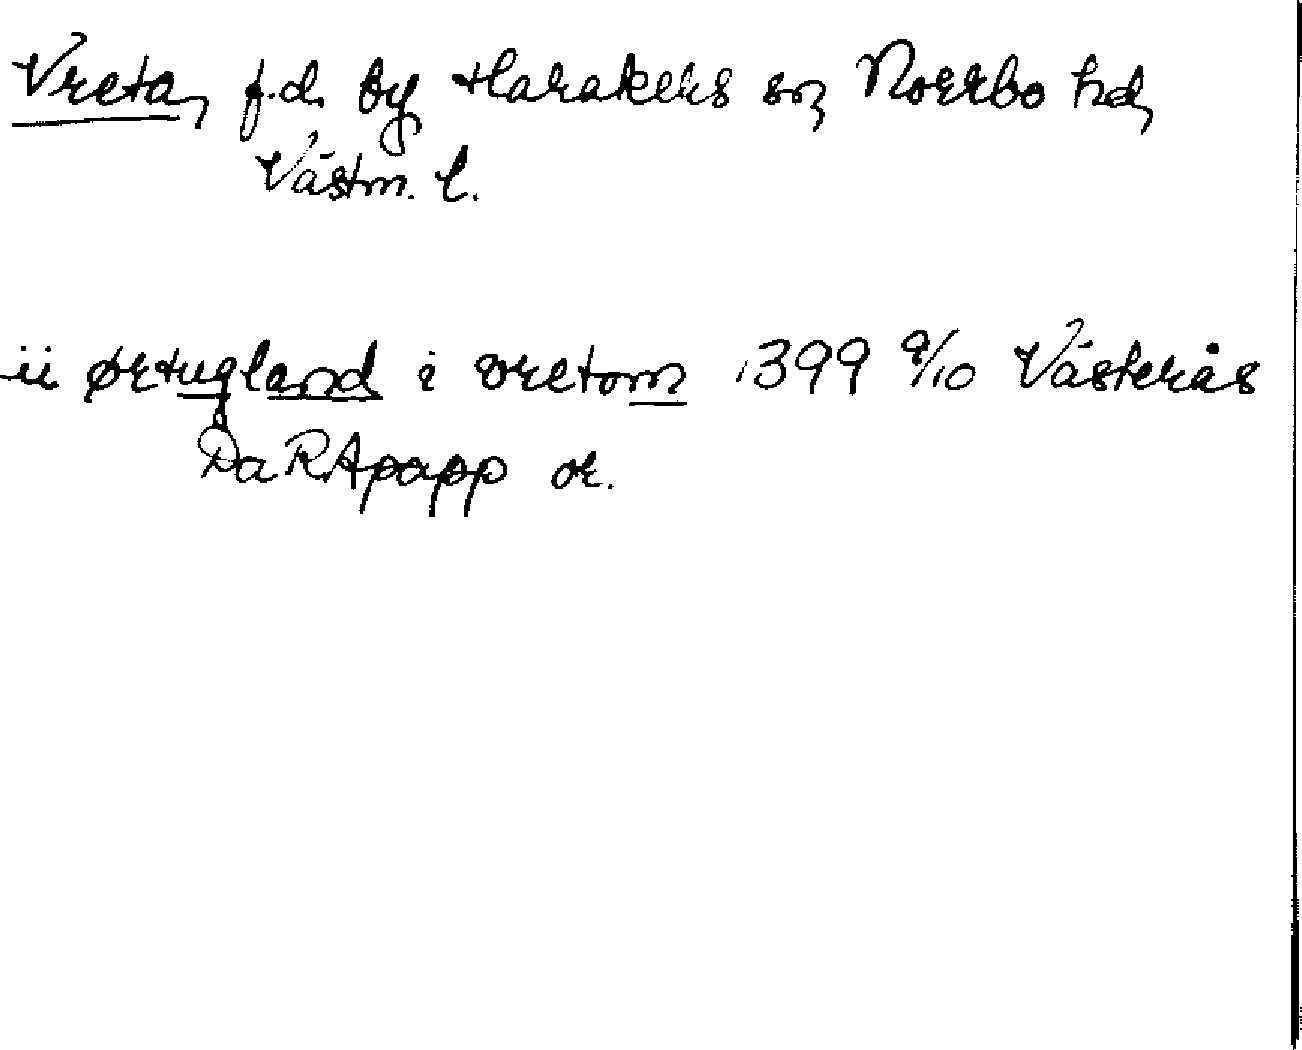 Vreta, f.d. by Harakers sn, Norrbo hd,
Västm. l.
ii ørtugland i vretom 1399 9/10 Västerås
Da RApapp or.